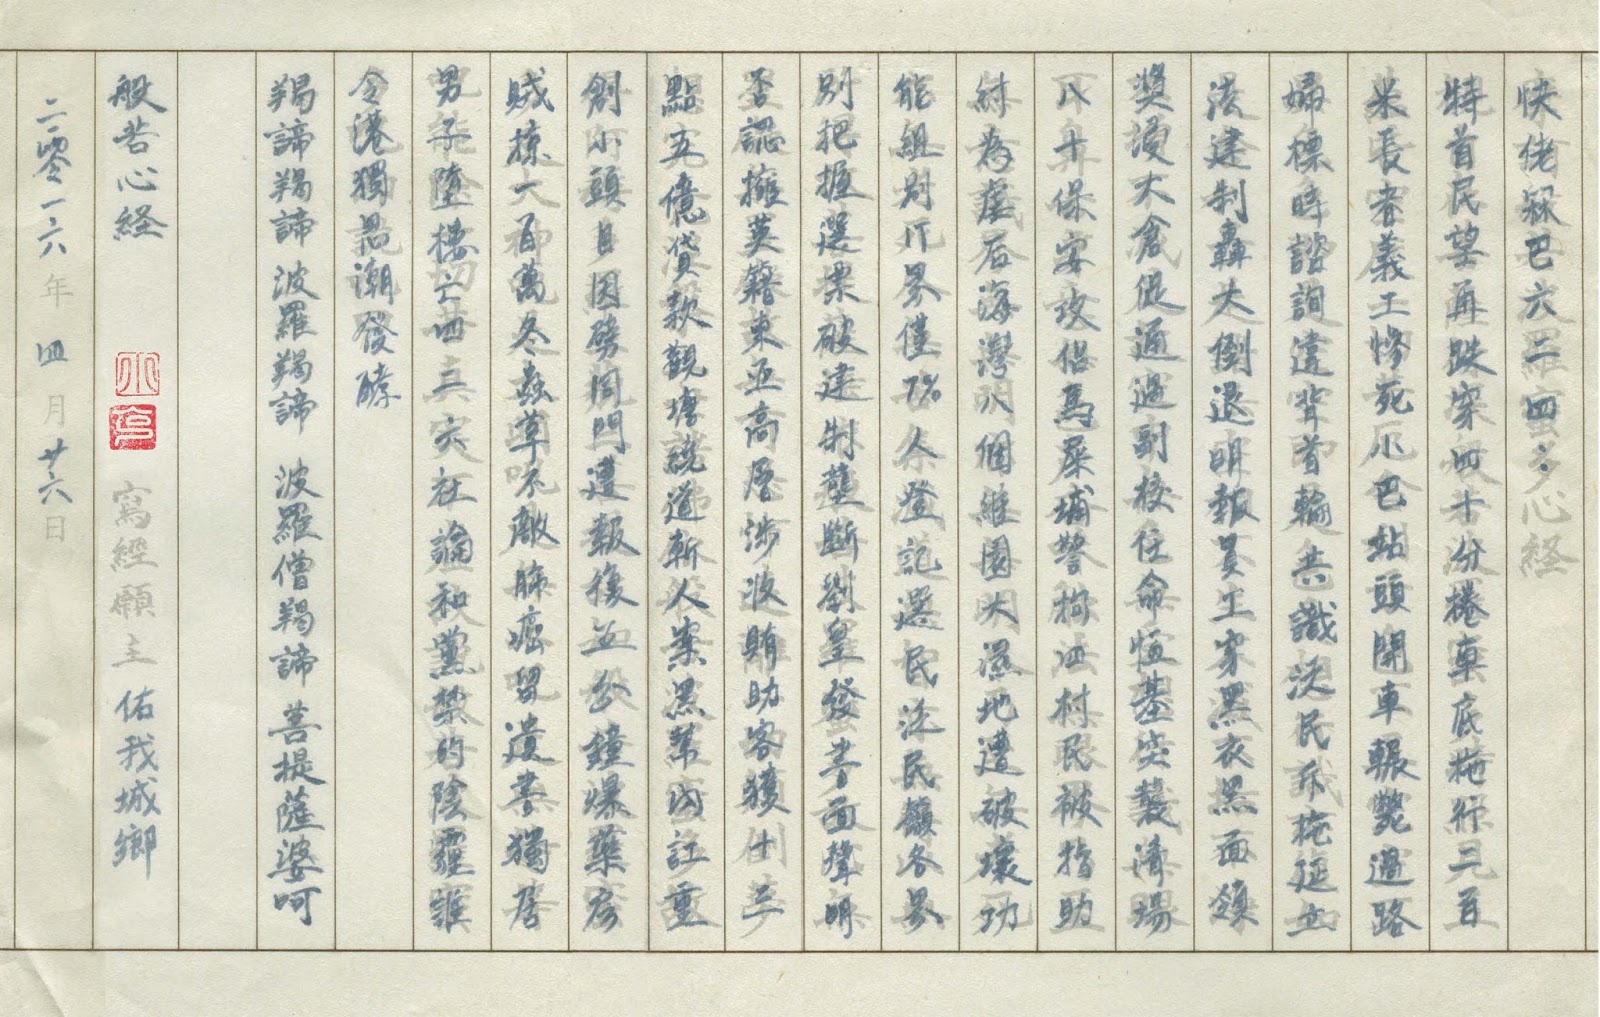 快佬冧巴六二四：
特首民望再跌穿四十分捲車底拖行三百
米長者義工慘死小巴站頭開車輾斃過路
婦標時諮詢違背首輪共識決民斥拖延立
法建制轟大倒退明報員工穿黑衣黑面領
獎浸大倉促通過副校任命恆基突襲清場
八十保安攻佔馬屎埔警拘四村民被指助
紂為虐后海灣八個維園大濕地遭破壞功
能組別IT界僅7%人登記選民泛民籲各界
別把握選票破建制壟斷劉皇發書面聲明
否認擁英籍東亞高層涉收賄助客獲十三
點五億貸款觀塘繞道斬人案黑幫內訌重
創小頭目因劈同門遭報復益公鐘爆藥房
賊掠一百萬冬蟲草不敵肺癌留遺書獨居
男子墮樓亡四二六社論和黨禁的陰霾誰
令港獨思潮發酵
羯諦羯諦 波羅羯諦 波羅僧羯諦 菩提薩婆呵
般若心経
寫經願主 佑我城鄉
二零一六年四月廿六日